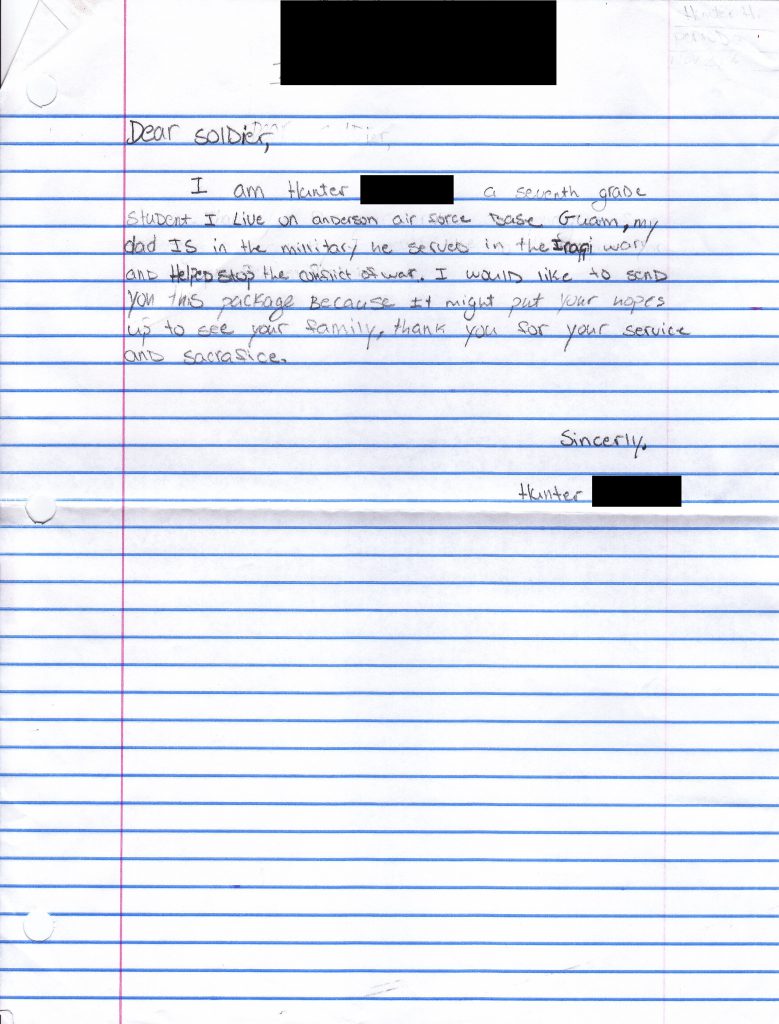 Dear soldier,
I am Hunter a seventh grade
student I Live on anderson air force Base Guam, my
dad IS in the millitary he served in the Iraqi war
and Helped stop the conflict of war. I would like to send
you this package Because It might put your hopes
up to see your family, thank you for your service
and sacrafice.
Sincerly,
Hunter